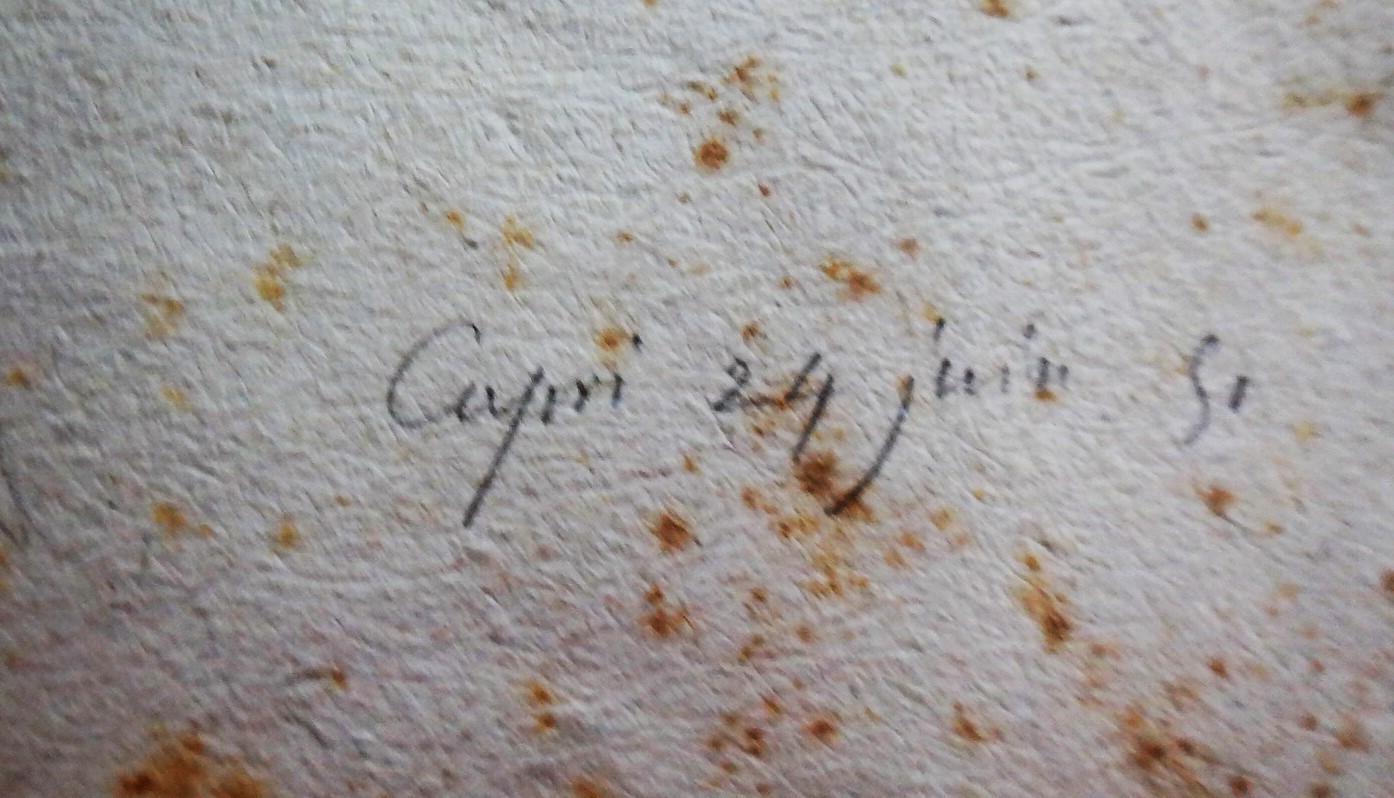 Capri 24 juin 51